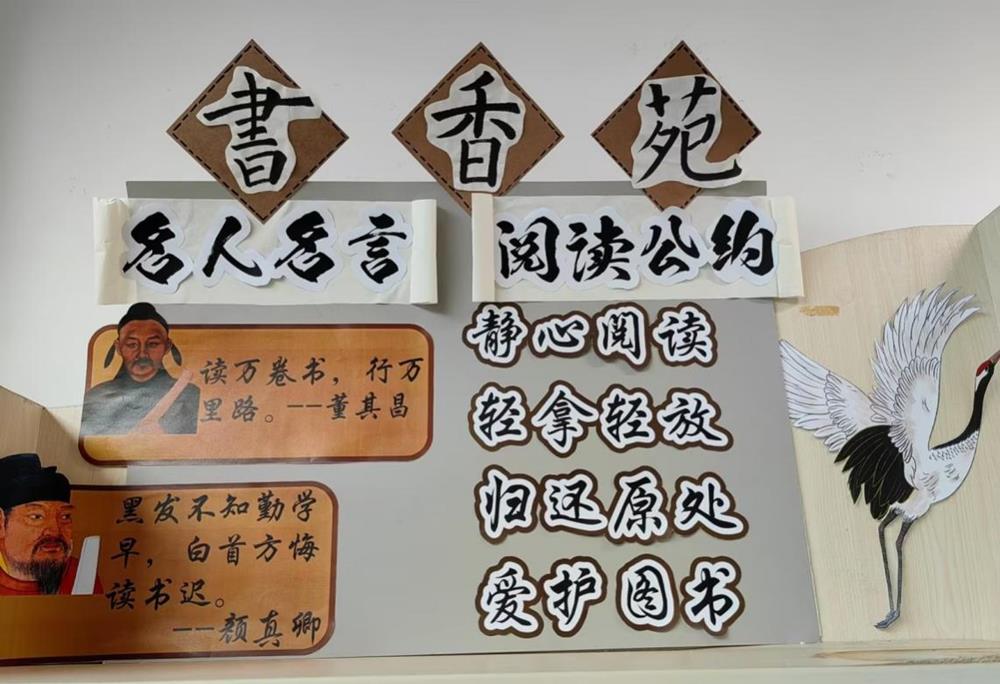 書香苑
名人名言
读万卷书，行万
里路。——董其昌
黑发不知勤学
早，白首方悔
读书迟。
——颜真卿
阅读公约
静心阅读
轻拿轻放
归还原处
爱护图书